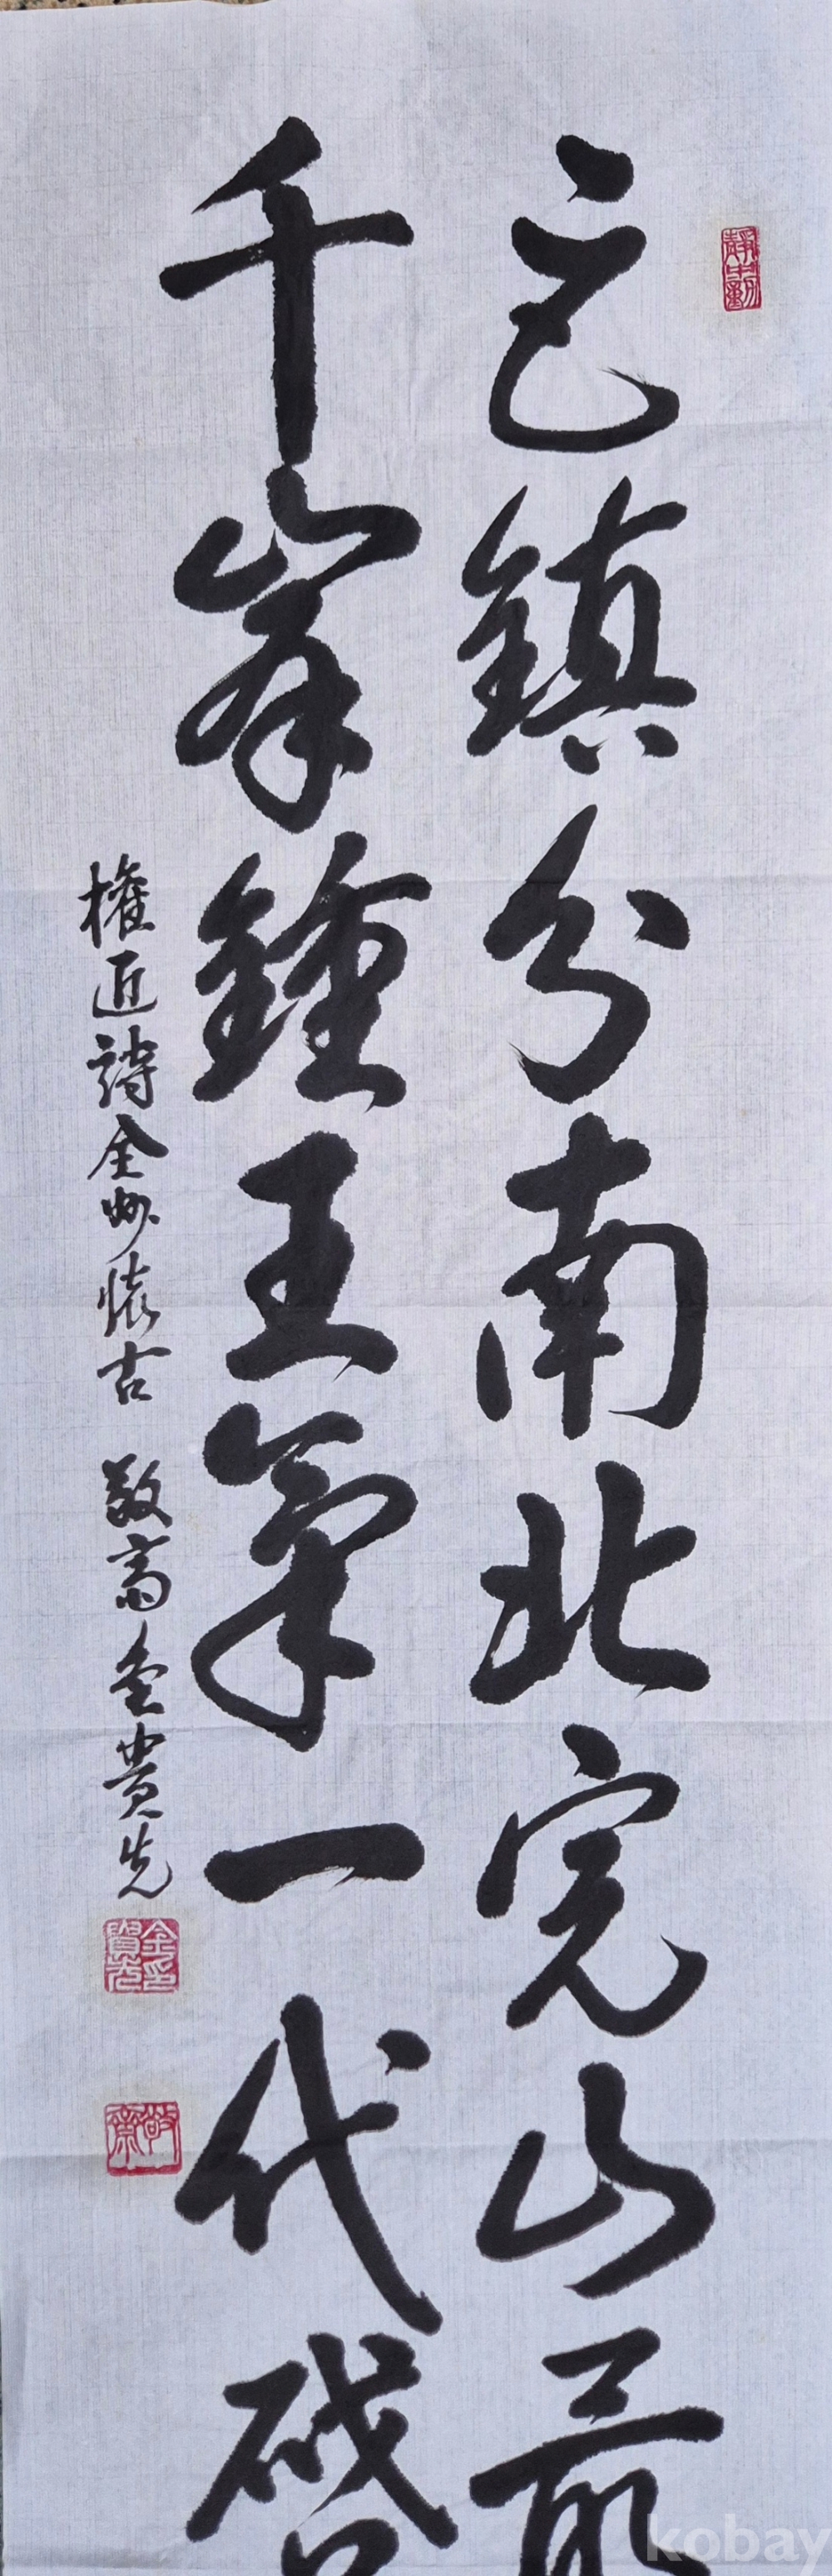 巨鎮分南北完山最
千峯鍾王氣一代啓
權近詩全州懷古 敬齋金貴先
靜中動
金貴先印
敬齋
kobay